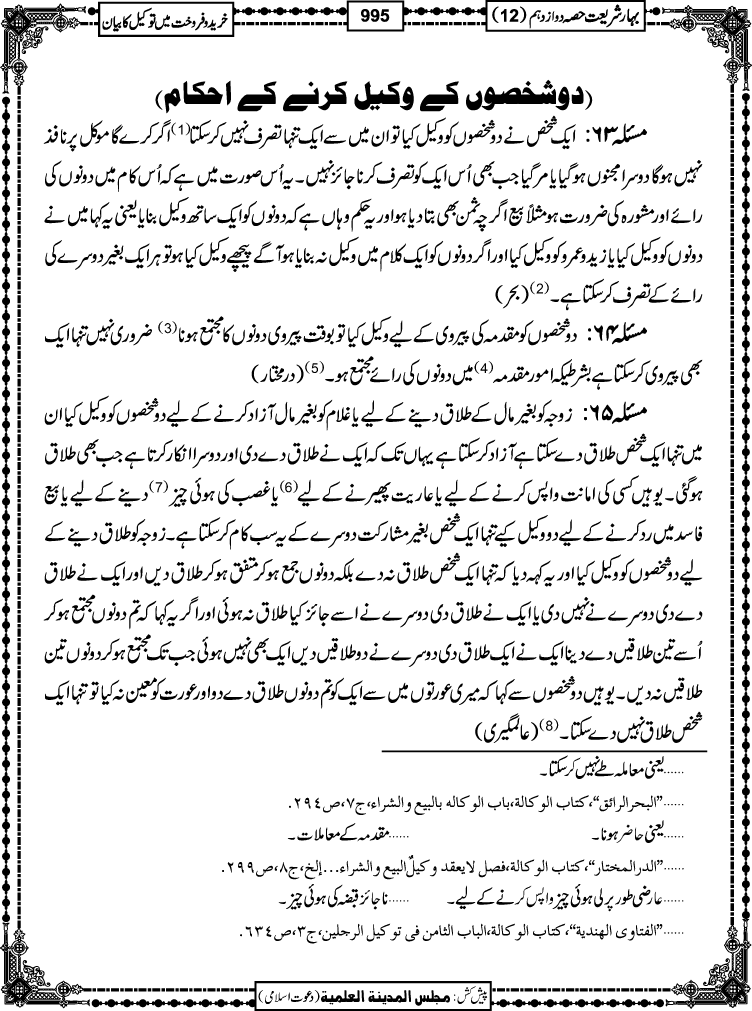 بہارِ شریعت حصہ دوازدہم (12)
995
خرید و فروخت میں توکیل کا بیان
(دو شخصوں کے وکیل کرنے کے احکام)
مسئلہ ۶۳: ایک شخص نے دو شخصوں کو وکیل کیا تو ان میں سے ایک تنہا تصرف نہیں کرسکتا(1) اگر کرے گا موکل پر نافذ
نہیں ہوگا دوسرا مجنون ہوگیا یا مرگیا جب بھی اُس ایک کو تصرف کرنا جائز نہیں۔ یہ اُس صورت میں ہے کہ اُس کام میں دونوں کی
رائے اور مشورہ کی ضرورت ہو مثلاً بیع اگرچہ ثمن بھی بتا دیا ہو اور یہ حکم وہاں ہے کہ دونوں کو ایک ساتھ وکیل بنایا یعنی یہ کہا میں نے
دونوں کو وکیل کیا یا زید و عمرو کو وکیل کیا اور اگر دونوں کو ایک کلام میں وکیل نہ بنایا ہو آگے پیچھے وکیل کیا ہو تو ہر ایک بغیر دوسرے کی
رائے کے تصرف کرسکتا ہے۔(2) (بحر)
مسئلہ ۶۴: دو شخصوں کو مقدمہ کی پیروی کے لیے وکیل کیا تو بوقت پیروی دونوں کا مجتمع ہونا(3) ضروری نہیں تنہا ایک
بھی پیروی کرسکتا ہے بشرطیکہ امور مقدمہ(4) میں دونوں کی رائے مجتمع ہو۔(5) (درمختار)
مسئلہ ۶۵: زوجہ کو بغیر مال کے طلاق دینے کے لیے یا غلام کو بغیر مال آزاد کرنے کے لیے دو شخصوں کو وکیل کیا ان
میں تنہا ایک شخص طلاق دے سکتا ہے آزاد کرسکتا ہے یہاں تک کہ ایک نے طلاق دے دی اور دوسرا انکار کرتا ہے جب بھی طلاق
ہوگئی۔ یوہیں کسی کی امانت واپس کرنے کے لیے یا عاریت پھیرنے کے لیے(6) یا غصب کی ہوئی چیز(7) دینے کے لیے یا بیع
فاسد میں رد کرنے کے لیے دو وکیل کیے تنہا ایک شخص بغیر مشارکت دوسرے کے یہ سب کام کرسکتا ہے۔ زوجہ کو طلاق دینے کے
لیے دو شخصوں کو وکیل کیا اور یہ کہہ دیا کہ تنہا ایک شخص طلاق نہ دے بلکہ دونوں جمع ہوکر متفق ہوکر طلاق دیں اور ایک نے طلاق
دے دی دوسرے نے نہیں دی یا ایک نے طلاق دی دوسرے نے اسے جائز کیا طلاق نہ ہوئی اور اگر یہ کہا کہ تم دونوں مجتمع ہوکر
اُسے تین طلاقیں دے دینا ایک نے ایک طلاق دی دوسرے نے دو طلاقیں دیں ایک بھی نہیں ہوئی جب تک مجتمع ہوکر دونوں تین
طلاقیں نہ دیں۔ یوہیں دو شخصوں سے کہا کہ میری عورتوں میں سے ایک کو تم دونوں طلاق دے دو اور عورت کو معین نہ کیا تو تنہا ایک
شخص طلاق نہیں دے سکتا۔(8) (عالمگیری)
......یعنی معاملہ طے نہیں کرسکتا۔
......"البحرالرائق"، کتاب الوکالة، باب الوکالہ بالبیع والشراء، ج۷، ص۲۹٤.
......یعنی حاضر ہونا۔ ......مقدمہ کے معاملات۔
......"الدرالمختار"، کتاب الوکالة، فصل لایعقد وکیلٌ البیع والشراء...إلخ، ج۸، ص۲۹۹.
......عارضی طور پر لی ہوئی چیز واپس کرنے کے لیے۔ ......ناجائز قبضہ کی ہوئی چیز۔
......"الفتاوی الھندیة"، کتاب الوکالة، الباب الثامن فی توکیل الرجلین، ج۳، ص٦۳٤.
پیش کش: مجلس المدینة العلمیة (دعوت اسلامی)